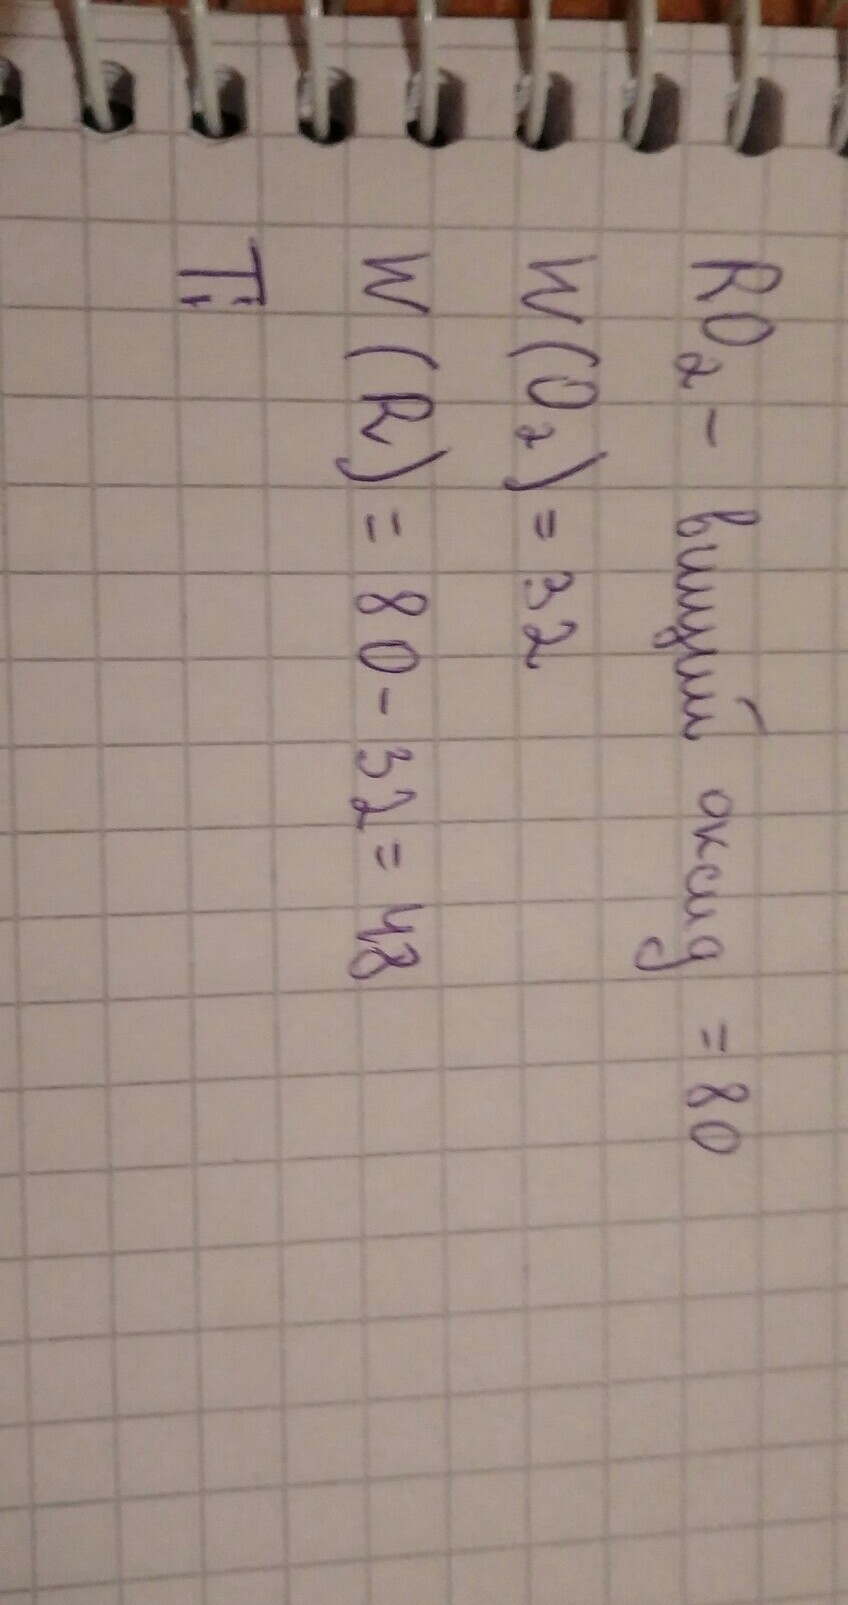 RO₂ - вищий оксид = 80
W(O₂) = 32
W(R) = 80 - 32 = 48
Ti